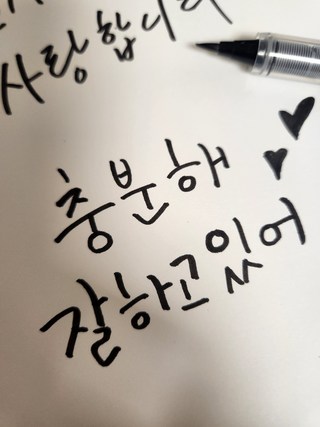 사랑합니다
충분해
잘하고 있어